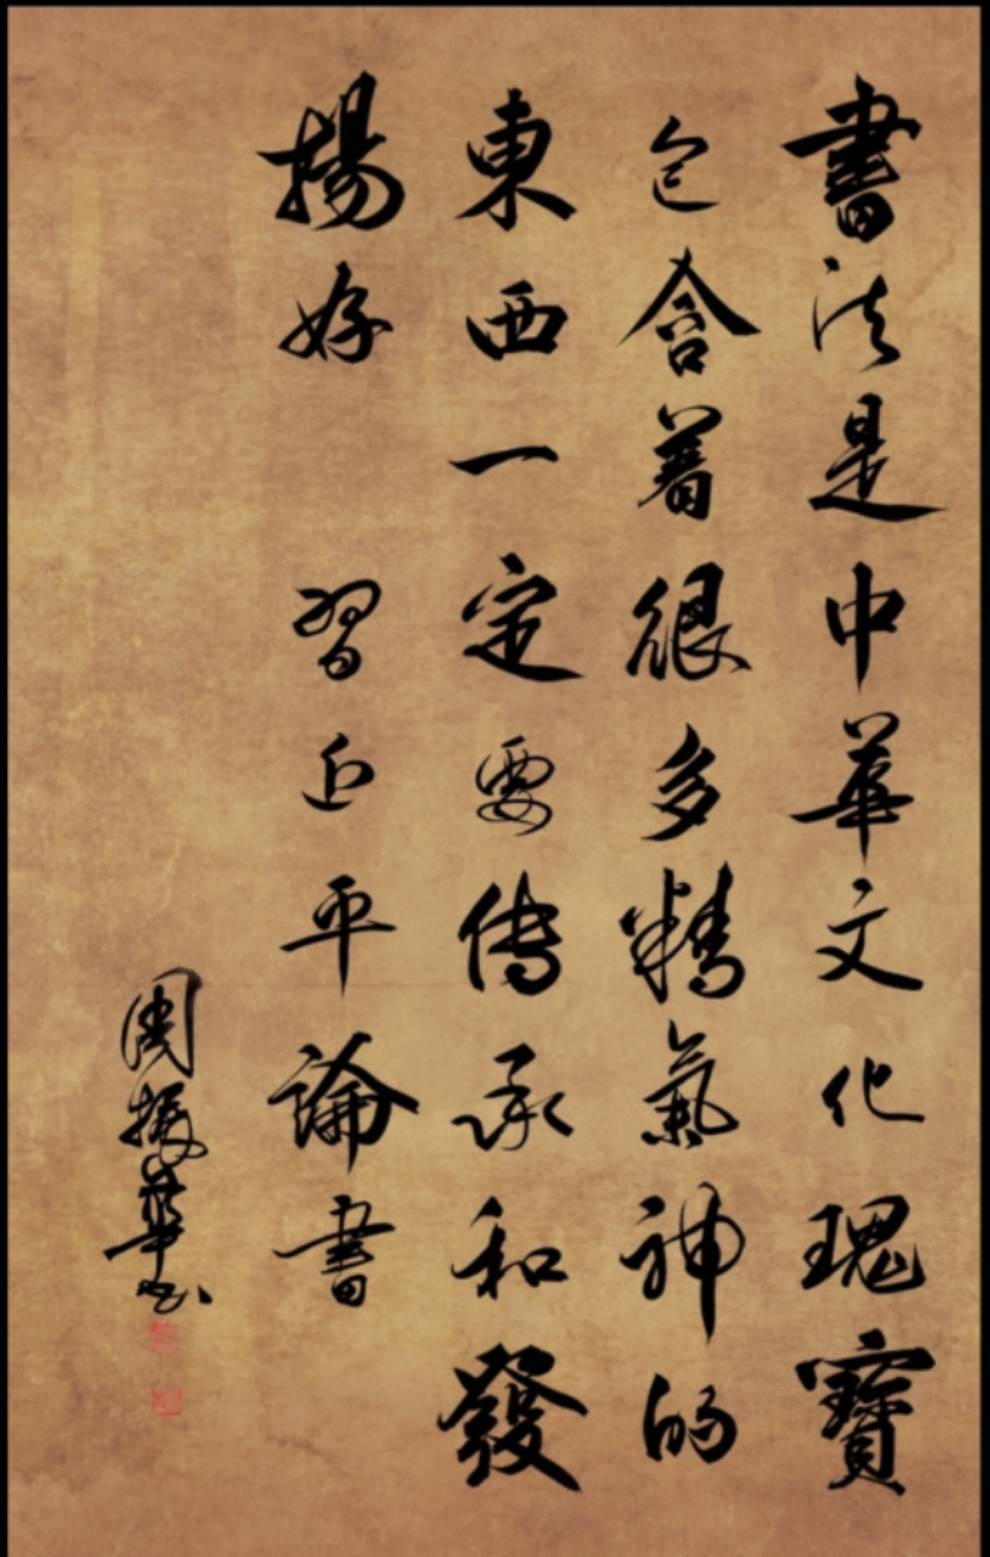 書法是中華文化瑰寶
包含着很多精氣神的
東西一定要傳承和發
揚好 習近平論書
周振華书